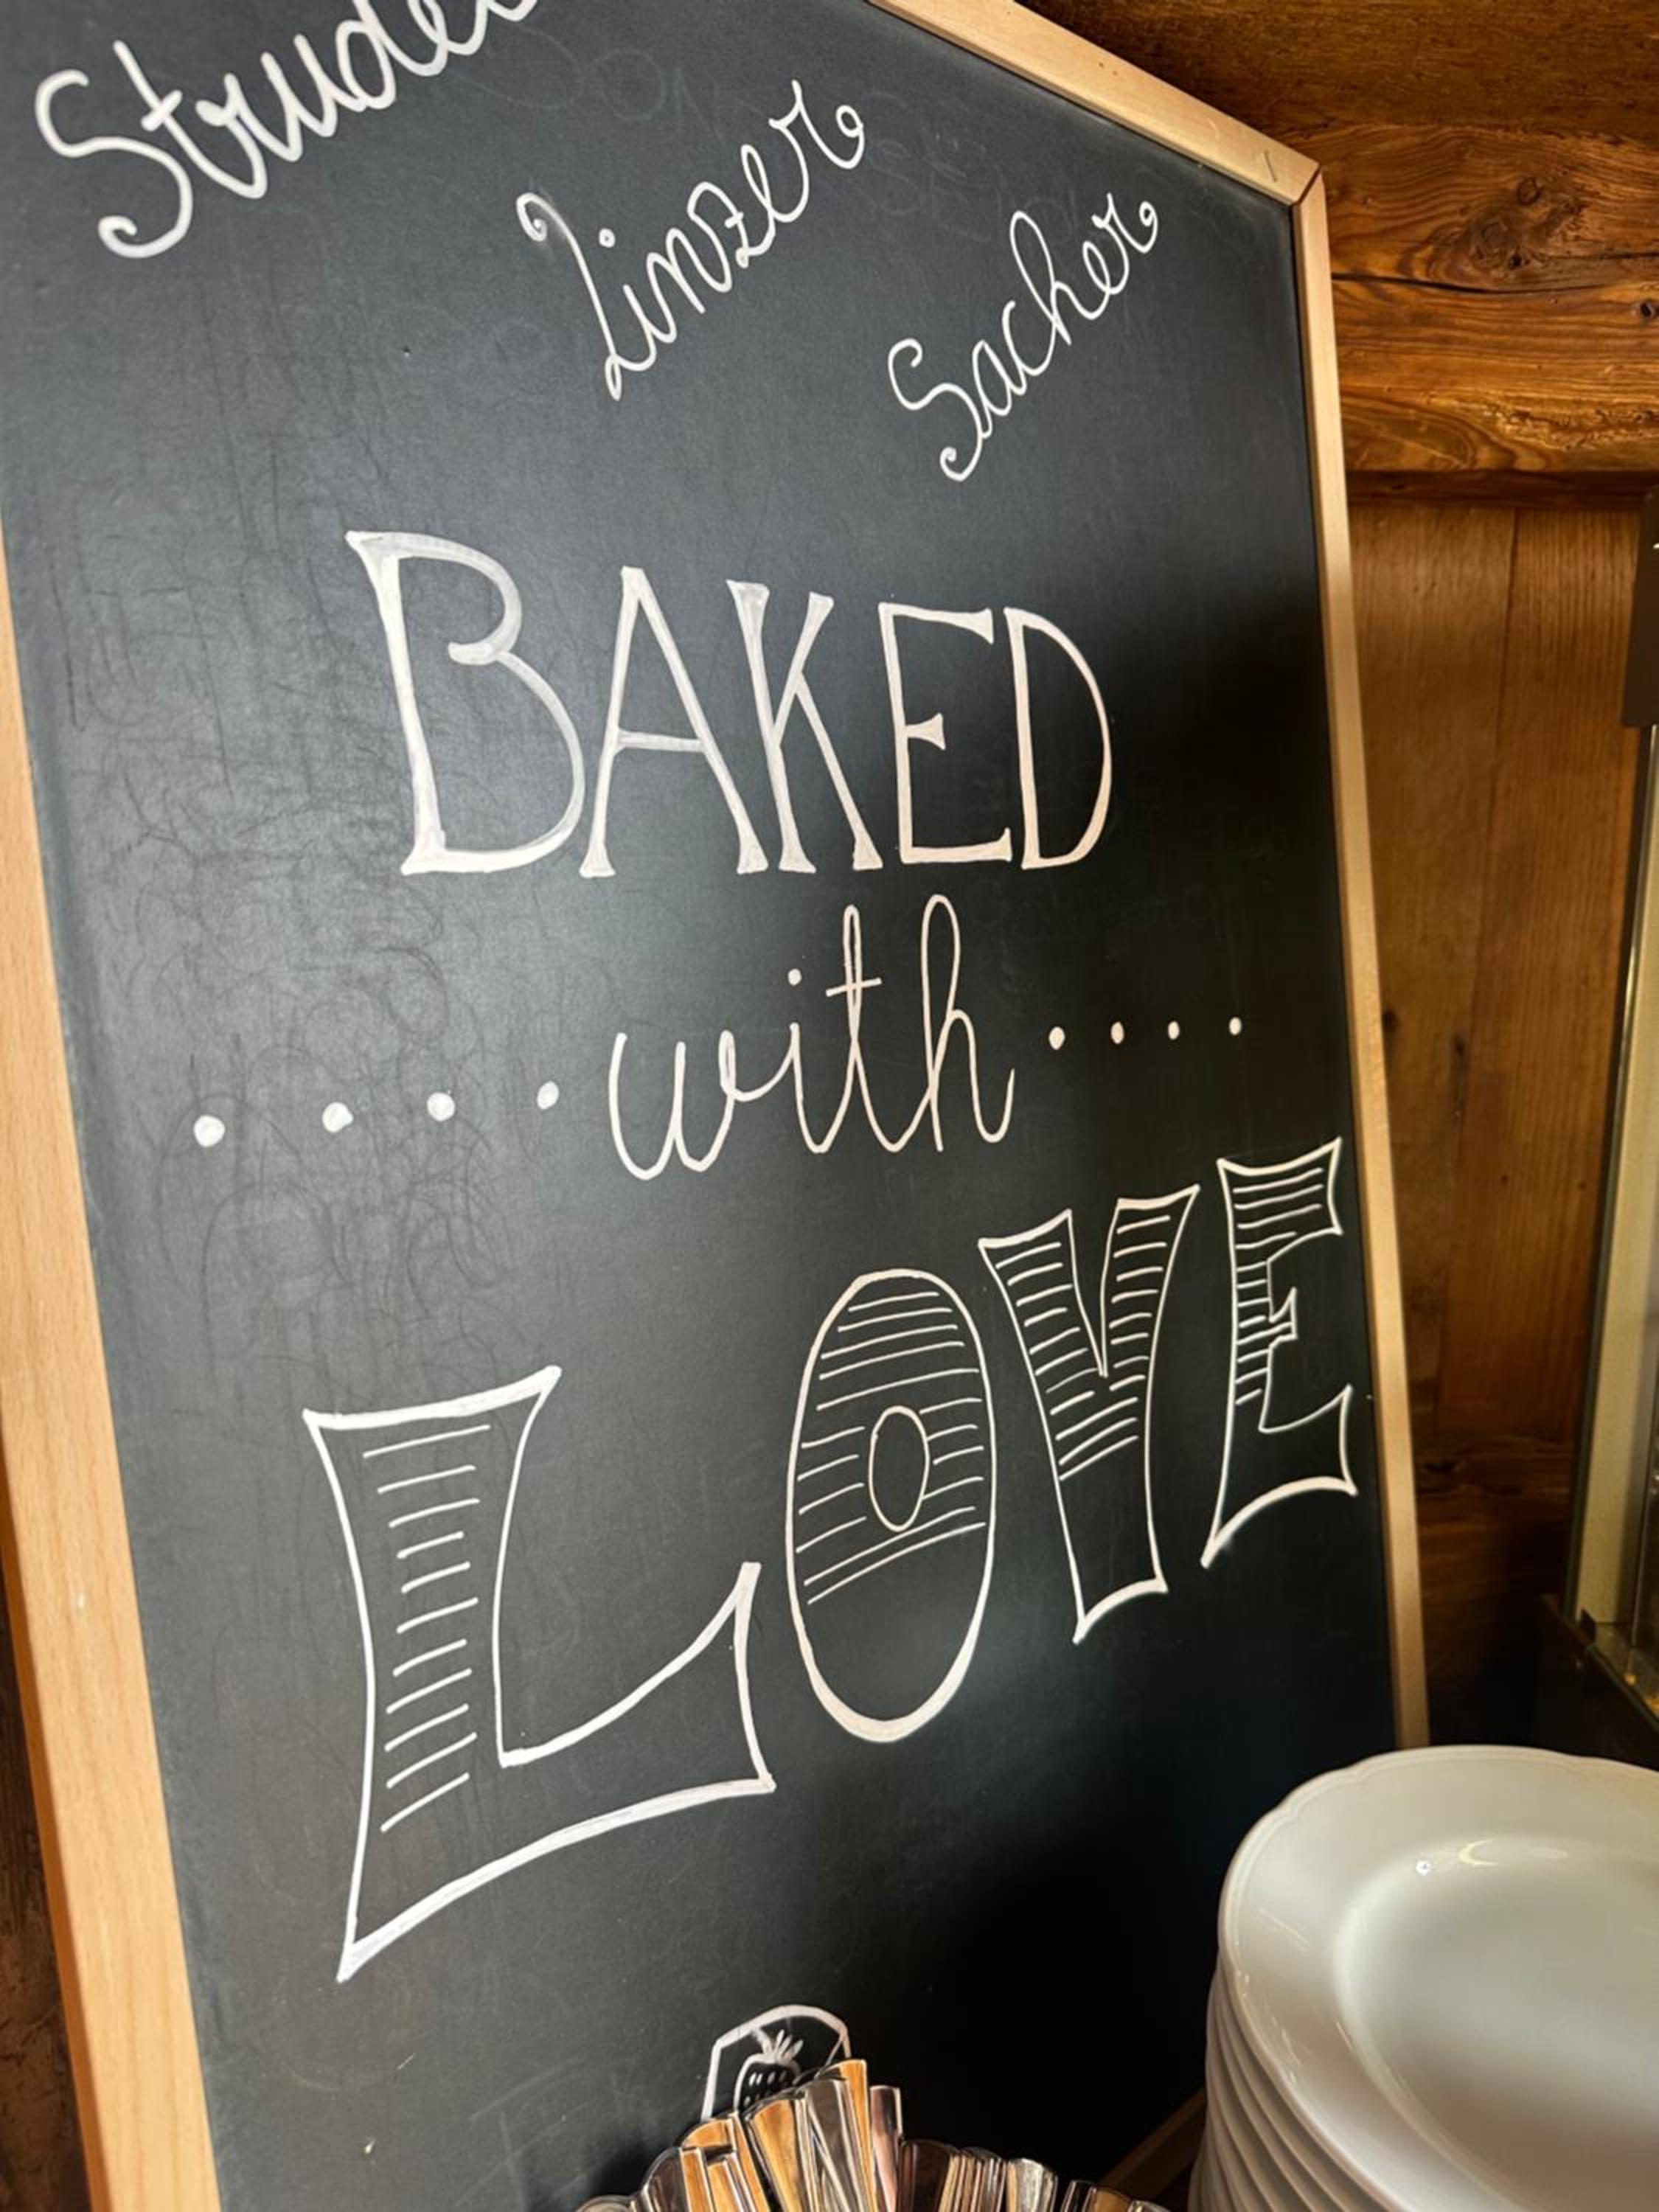 Strudel
Linzer
Sacher
BAKED
....with....
LOVE